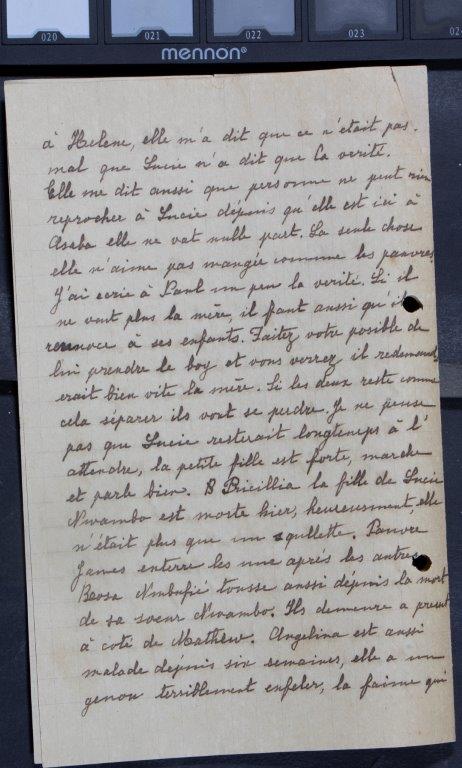 020 021 022 023 024
mennon®
à Helene, elle m'a dit que ce n'était pas.
mal que Lucie n'a dit que la verité.
Elle me dit aussi que personne ne peut rien
reprocher à Lucie dépuis qu'elle est ici à
Aseba elle ne vat nulle part. La seule chose
elle n'aime pas mangée comme les pauvres.
J'ai ecrie à Paul un peu la verité. Si il
ne veut plus la mère, il faut aussi qu'il
renonce à ses enfants. Faitez votre posible de
lui prendre le boy et vous verrez il redemand
erait bien vite la mère. Si les deux reste comme
cela séparer ils vont se perdre. Je ne pense
pas que Lucie resterait longtemps à l'
attendre, la petite fille est forte, marche
et parle bien. B Pricillia la fille de Lucie
Nwambo est morte hier, heureusment, elle
n'était plus que un squllette. Pauvre
James enterre les une aprés les autres
tousse aussi depuis la mort
de sa soeur Nwambo. Ils demeure a present
à coté de Mathew. Angelina est aussi
malade depuis six semaines, elle a un
genou terriblement enfeler, la faime qui